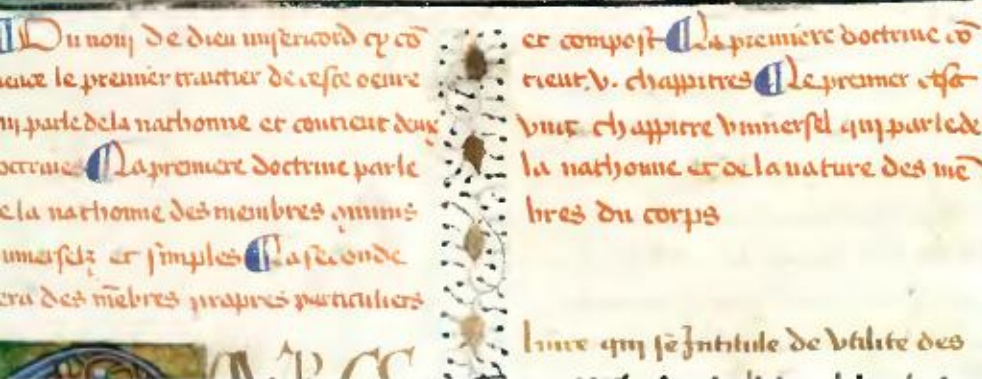 Ou nom de dieu misericord cy cō
mence le premier traictier de ceste oeuure
qui parle de la nathonne et contient deux
doctrines ¶ La premiere doctrine parle
de la nathonne des membres cōmuns
vniuerselz et simples ¶ La seconde
sera des mēbres propres particuliers
et compost ¶ La premiere doctrine cō
tient .v. chappitres ¶ Le premier est
vng chappitre vniuersel qui parle de
la nathonne et de la nature des mē
bres du corps
liure qui se Intitule de vtilite des